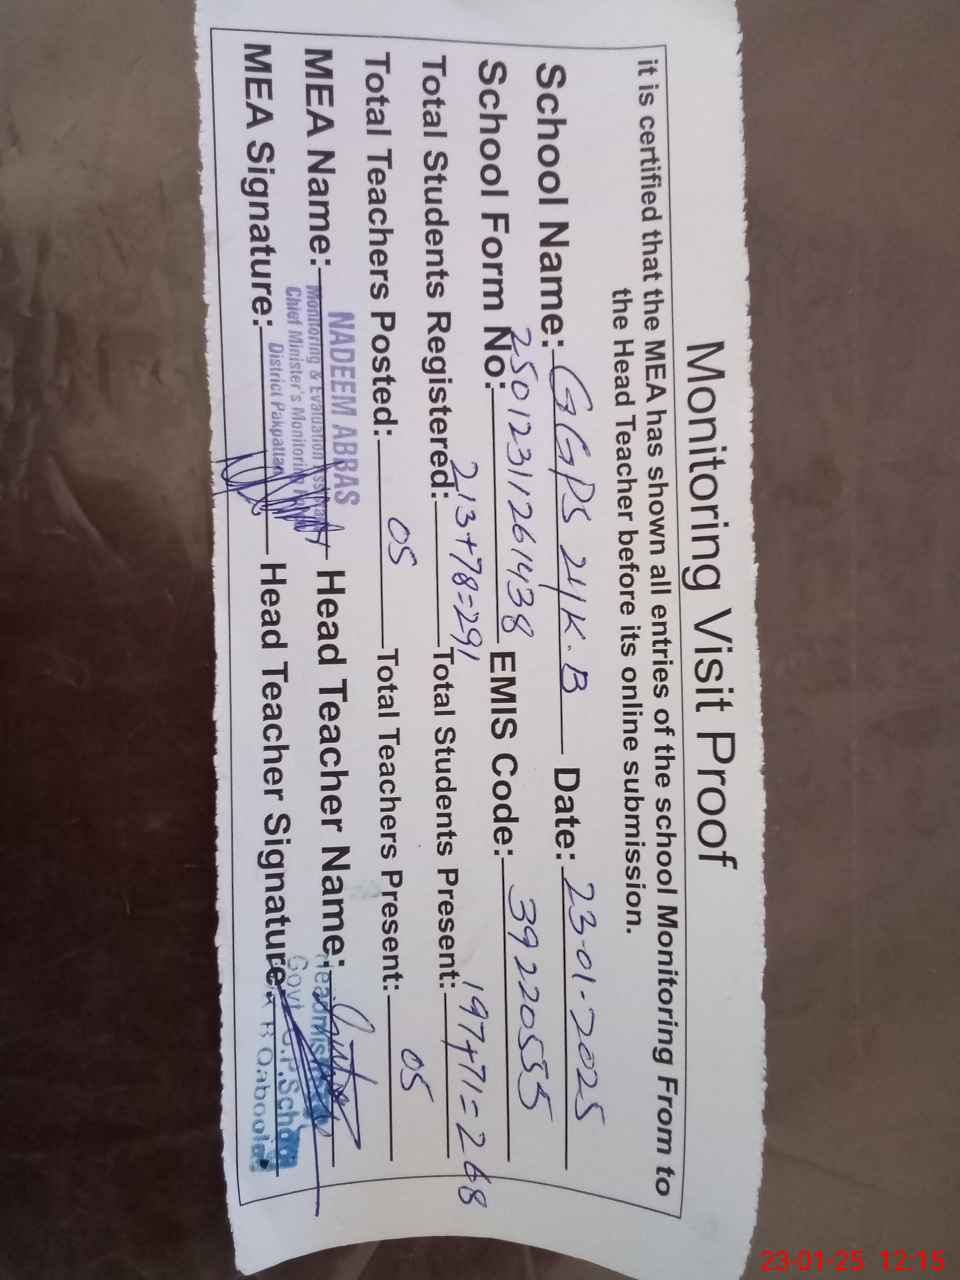 Monitoring Visit Proof
it is certified that the MEA has shown all entries of the school Monitoring From to
the Head Teacher before its online submission.
School Name: GGPS 24K.B Date: 23-01-2025
School Form No: 25012311261438 EMIS Code: 39220555
Total Students Registered: 213+78=291 Total Students Present: 197+71=268
Total Teachers Posted: 05 Total Teachers Present: 05
MEA Name: NADEEM ABBAS Head Teacher Name:
Monitoring & Evaluation
Chief Minister's Monitoring
District Pakpattan
MEA Signature: Head Teacher Signature:
Headmistress
Govt G.P.School
K B Qaboola
23-01-25 12:15